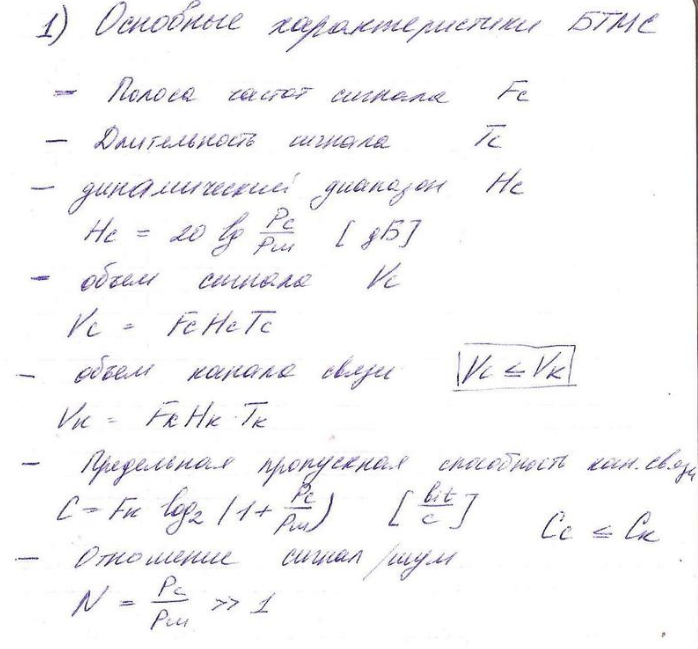 1) Основные характеристики БТМС
- Полоса частот сигнала Fc
- Длительность сигнала Tc
- динамический диапазон Hc
Hc = 20 lg Pc/Pш [дБ]
- объем сигнала Vc
Vc = FcHcTc
- объем канала связи Vc ≤ Vк
Vк = FкHк·Tк
- Предельная пропускная способность кан. связи
C = Fк log₂ (1+ Pc/Pш) [bit/c] Cc ≤ Cк
- Отношение сигнал/шум
N = Pc/Pш >> 1